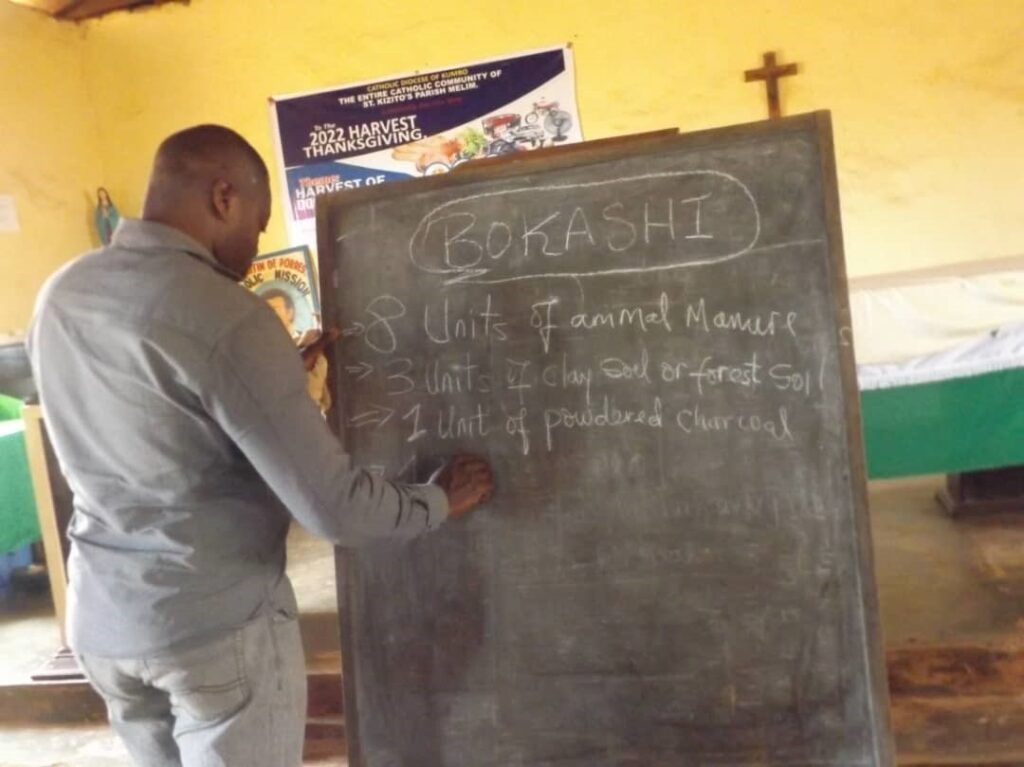 CATHOLIC DIOCESE OF KUMBO
THE ENTIRE CATHOLIC COMMUNITY OF
ST. KIZITO'S PARISH MELIM.
To The
2022 HARVEST
THANKSGIVING.
Theme:
HARVEST OF
TIN DE PORRES
OLIC MISSION
BOKASHI
8 Units of animal Manure
3 Units of clay soil or forest Soil
1 Unit of powdered charcoal